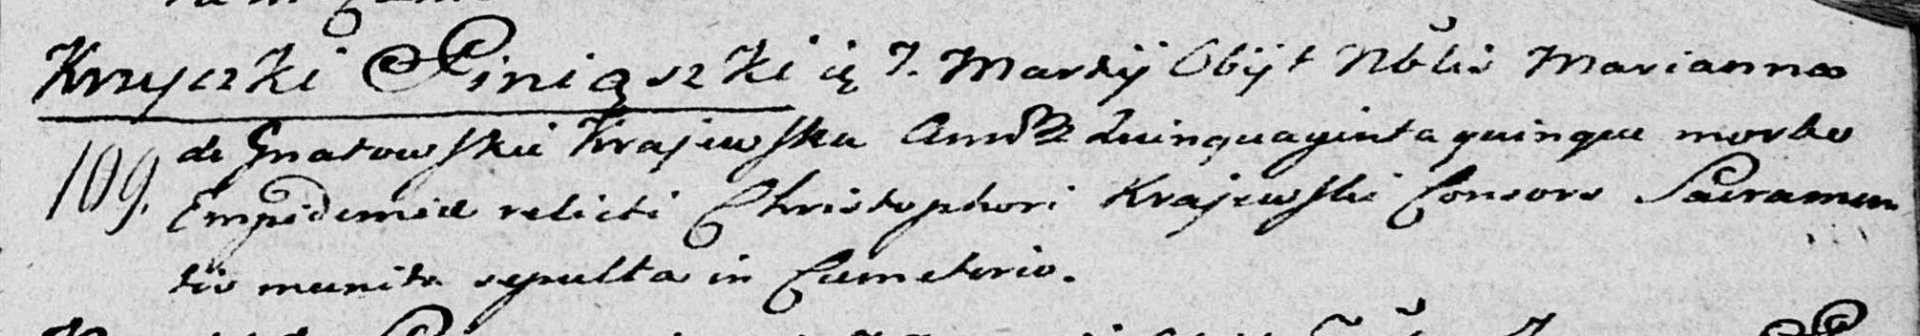 Krzyczki Pieniąszki ię 7. Martij Obijt Nblis Marianna
de Gnatowskie Krajewska Quinquaginta quinque morbo
109. Empidemiæ relicti Christophori Krajewski Consors Sacramen
tis munita sepulta in Cæmeterio.